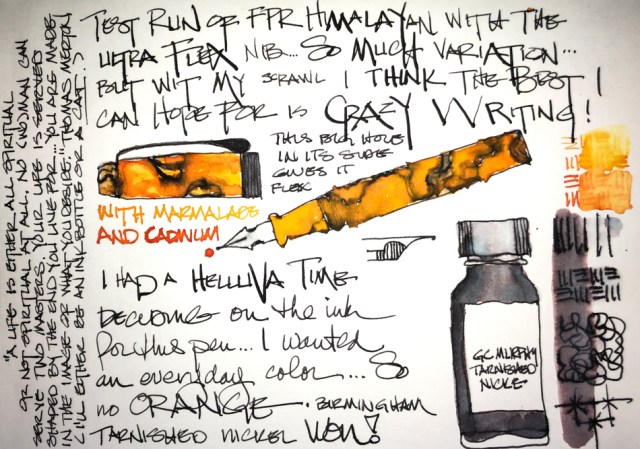 TEST RUN OF FPR HIMALAYAN WITH THE
ULTRA FLEX NIB... SO MUCH VARIATION...
BUT WIT MY SCRAWL I THINK THE BEST I
CAN HOPE FOR IS CRAZY WRITING!
THIS BIG HOLE
IN ITS SIDE
GIVES IT
FLEX
WITH MARMALADE
AND CADMIUM
I HAD A HELLUVA TIME
DECIDING on the ink
for this pen... I wanted
an everyday color.... So
no ORANGE. BIRMINGHAM
TARNISHED NICKEL WON!
GC MURPHY
TARNISHED
NICKLE
"A LIFE IS EITHER ALL SPIRITUAL
OR NOT SPIRITUAL AT ALL. NO (WO)MAN CAN
SERVE TWO MASTERS. YOUR LIFE IS
SHAPED BY THE END YOU LIVE FOR... YOU ARE MADE
IN THE IMAGE OF WHAT YOU DESIRE." THOMAS MERTON
(I'LL EITHER BE AN INK BOTTLE OR A CAT. :)